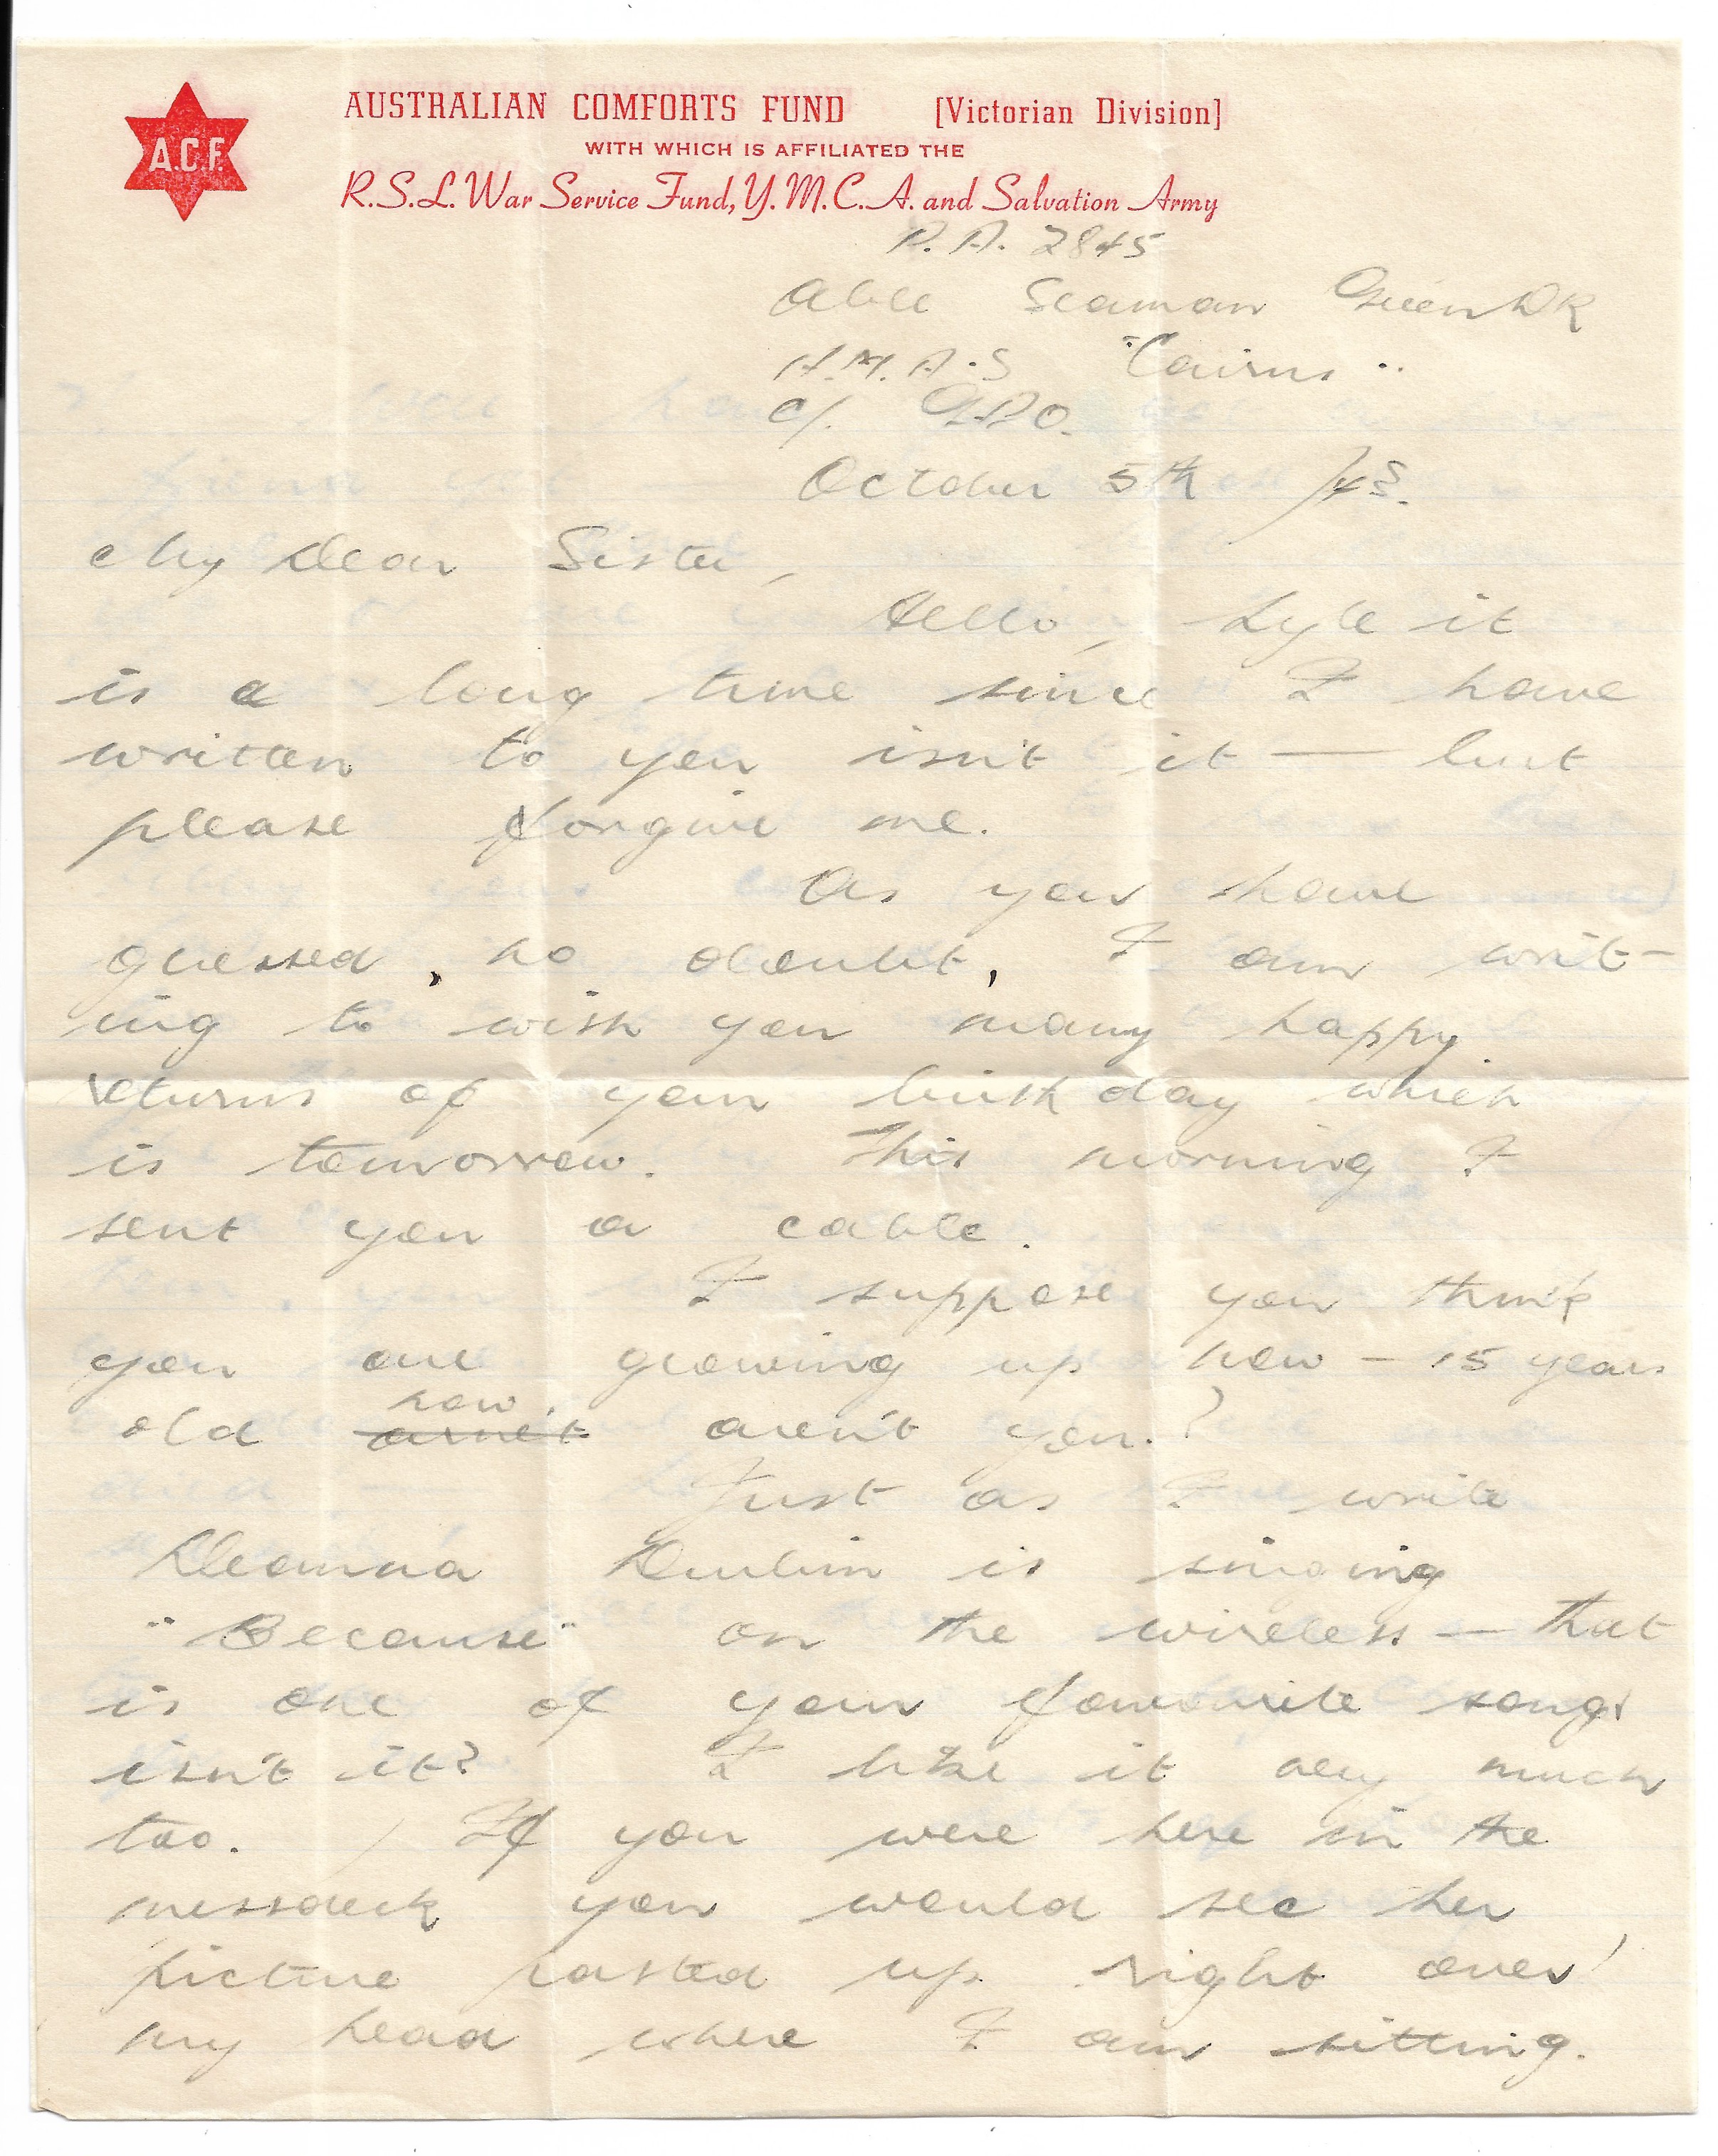 A.C.F.
AUSTRALIAN COMFORTS FUND [Victorian Division]
WITH WHICH IS AFFILIATED THE
R.S.L. War Service Fund, Y.M.C.A. and Salvation Army
P.A. 2845
Able Seaman Green DR
H.M.A.S "Cairns"
c/. GPO.
October 5th /43.
My Dear Sister,
Hello, Lyle it
is a long time since I have
written to you isn't it — but
please forgive me.
As you have
guessed, no doubt, I am writ-
ing to wish you many happy
returns of your birthday which
is tomorrow. This morning I
sent you a cable.
I suppose you think
you are growing up now - 15 years
old now aren't you.?
Just as I write
Deanna Durbin is singing
"Because" on the wireless — that
is one of your favourite songs
isn't it? I like it very much
too. If you were here in the
messdeck you would see her
picture pasted up right over
my head where I am sitting.